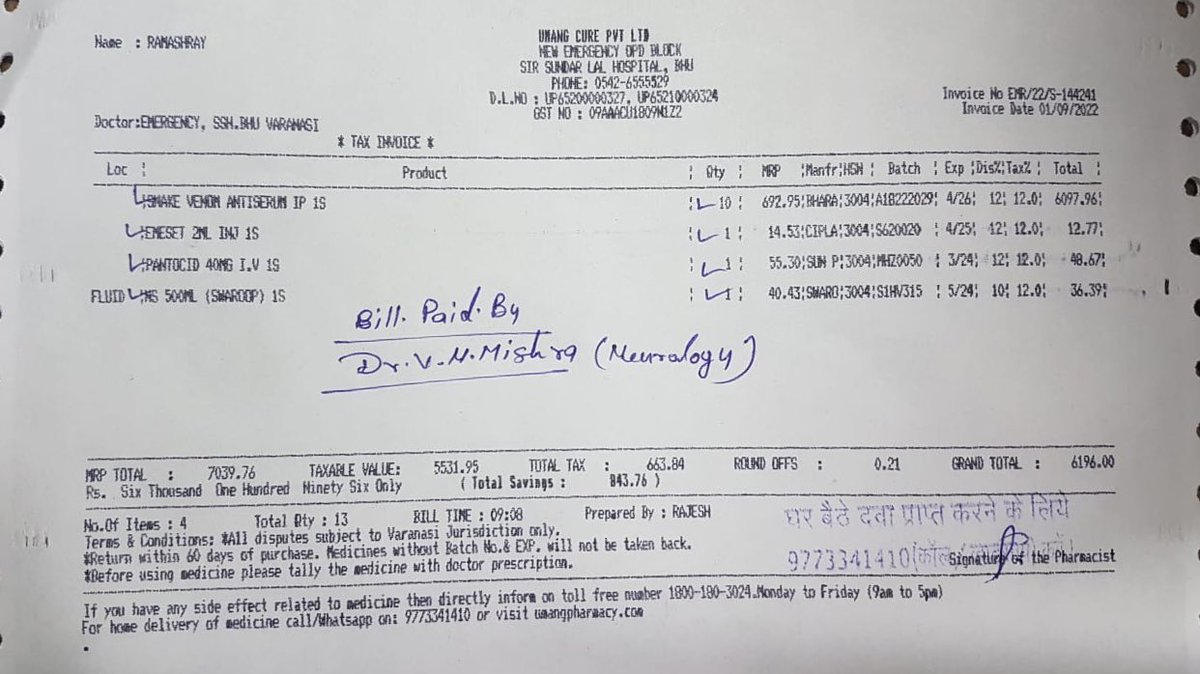 Name : RAMASHRAY
UMANG CURE PVT LTD
NEW EMERGENCY OPD BLOCK
SIR SUNDAR LAL HOSPITAL, BHU
PHONE: 0542-6555529
D.L.NO : UP65200000327, UP65210000324
GST NO : 09AAACU1809N1Z2
Invoice No EMR/22/S-144241
Invoice Date 01/09/2022
Doctor:EMERGENCY, SSH.BHU VARANASI
* TAX INVOICE *
Loc ¦ Product ¦ Qty ¦ MRP ¦Manfr¦HSN ¦ Batch ¦ Exp ¦Dis%¦Tax%¦ Total ¦
¦SNAKE VENOM ANTISERUM IP 1S ¦ 10 ¦ 692.95¦BHARA¦3004¦A18222029¦ 4/26¦ 12¦ 12.0¦ 6097.96¦
¦EMESET 2ML INJ 1S ¦ 1 ¦ 14.53¦CIPLA¦3004¦S620020 ¦ 4/25¦ 12¦ 12.0¦ 12.77¦
¦PANTOCID 40MG I.V 1S ¦ 1 ¦ 55.30¦SUN P¦3004¦MHZ0050 ¦ 3/24¦ 12¦ 12.0¦ 48.67¦
FLUID ¦NS 500ML (SWAROOP) 1S ¦ 1 ¦ 40.43¦SWARO¦3004¦S1HV315 ¦ 5/24¦ 10¦ 12.0¦ 36.39¦
Bill. Paid. By
Dr. V. N. Mishra (Neurology)
MRP TOTAL : 7039.76 TAXABLE VALUE: 5531.95 TOTAL TAX : 663.84 ROUND OFFS : 0.21 GRAND TOTAL : 6196.00
Rs. Six Thousand One Hundred Ninety Six Only ( Total Savings : 843.76 )
No.Of Items : 4 Total Qty : 13 BILL TIME : 09:08 Prepared By : RAJESH
Terms & Conditions: *All disputes subject to Varanasi Jurisdiction only.
*Return within 60 days of purchase. Medicines without Batch No.& EXP. will not be taken back.
*Before using medicine please tally the medicine with doctor prescription.
घर बैठे दवा प्राप्त करने के लिये
9773341410
Signature of the Pharmacist
If you have any side effect related to medicine then directly inform on toll free number 1800-180-3024.Monday to Friday (9am to 5pm)
For home delivery of medicine call/Whatsapp on: 9773341410 or visit umangpharmacy.com